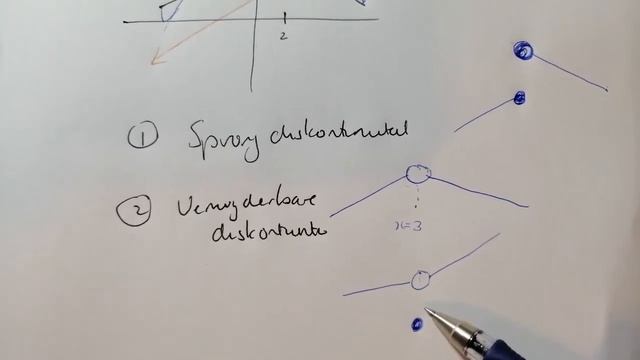 2
① Sprong diskontinuiteit
② Verwyderbare
diskontinuïte
x=3